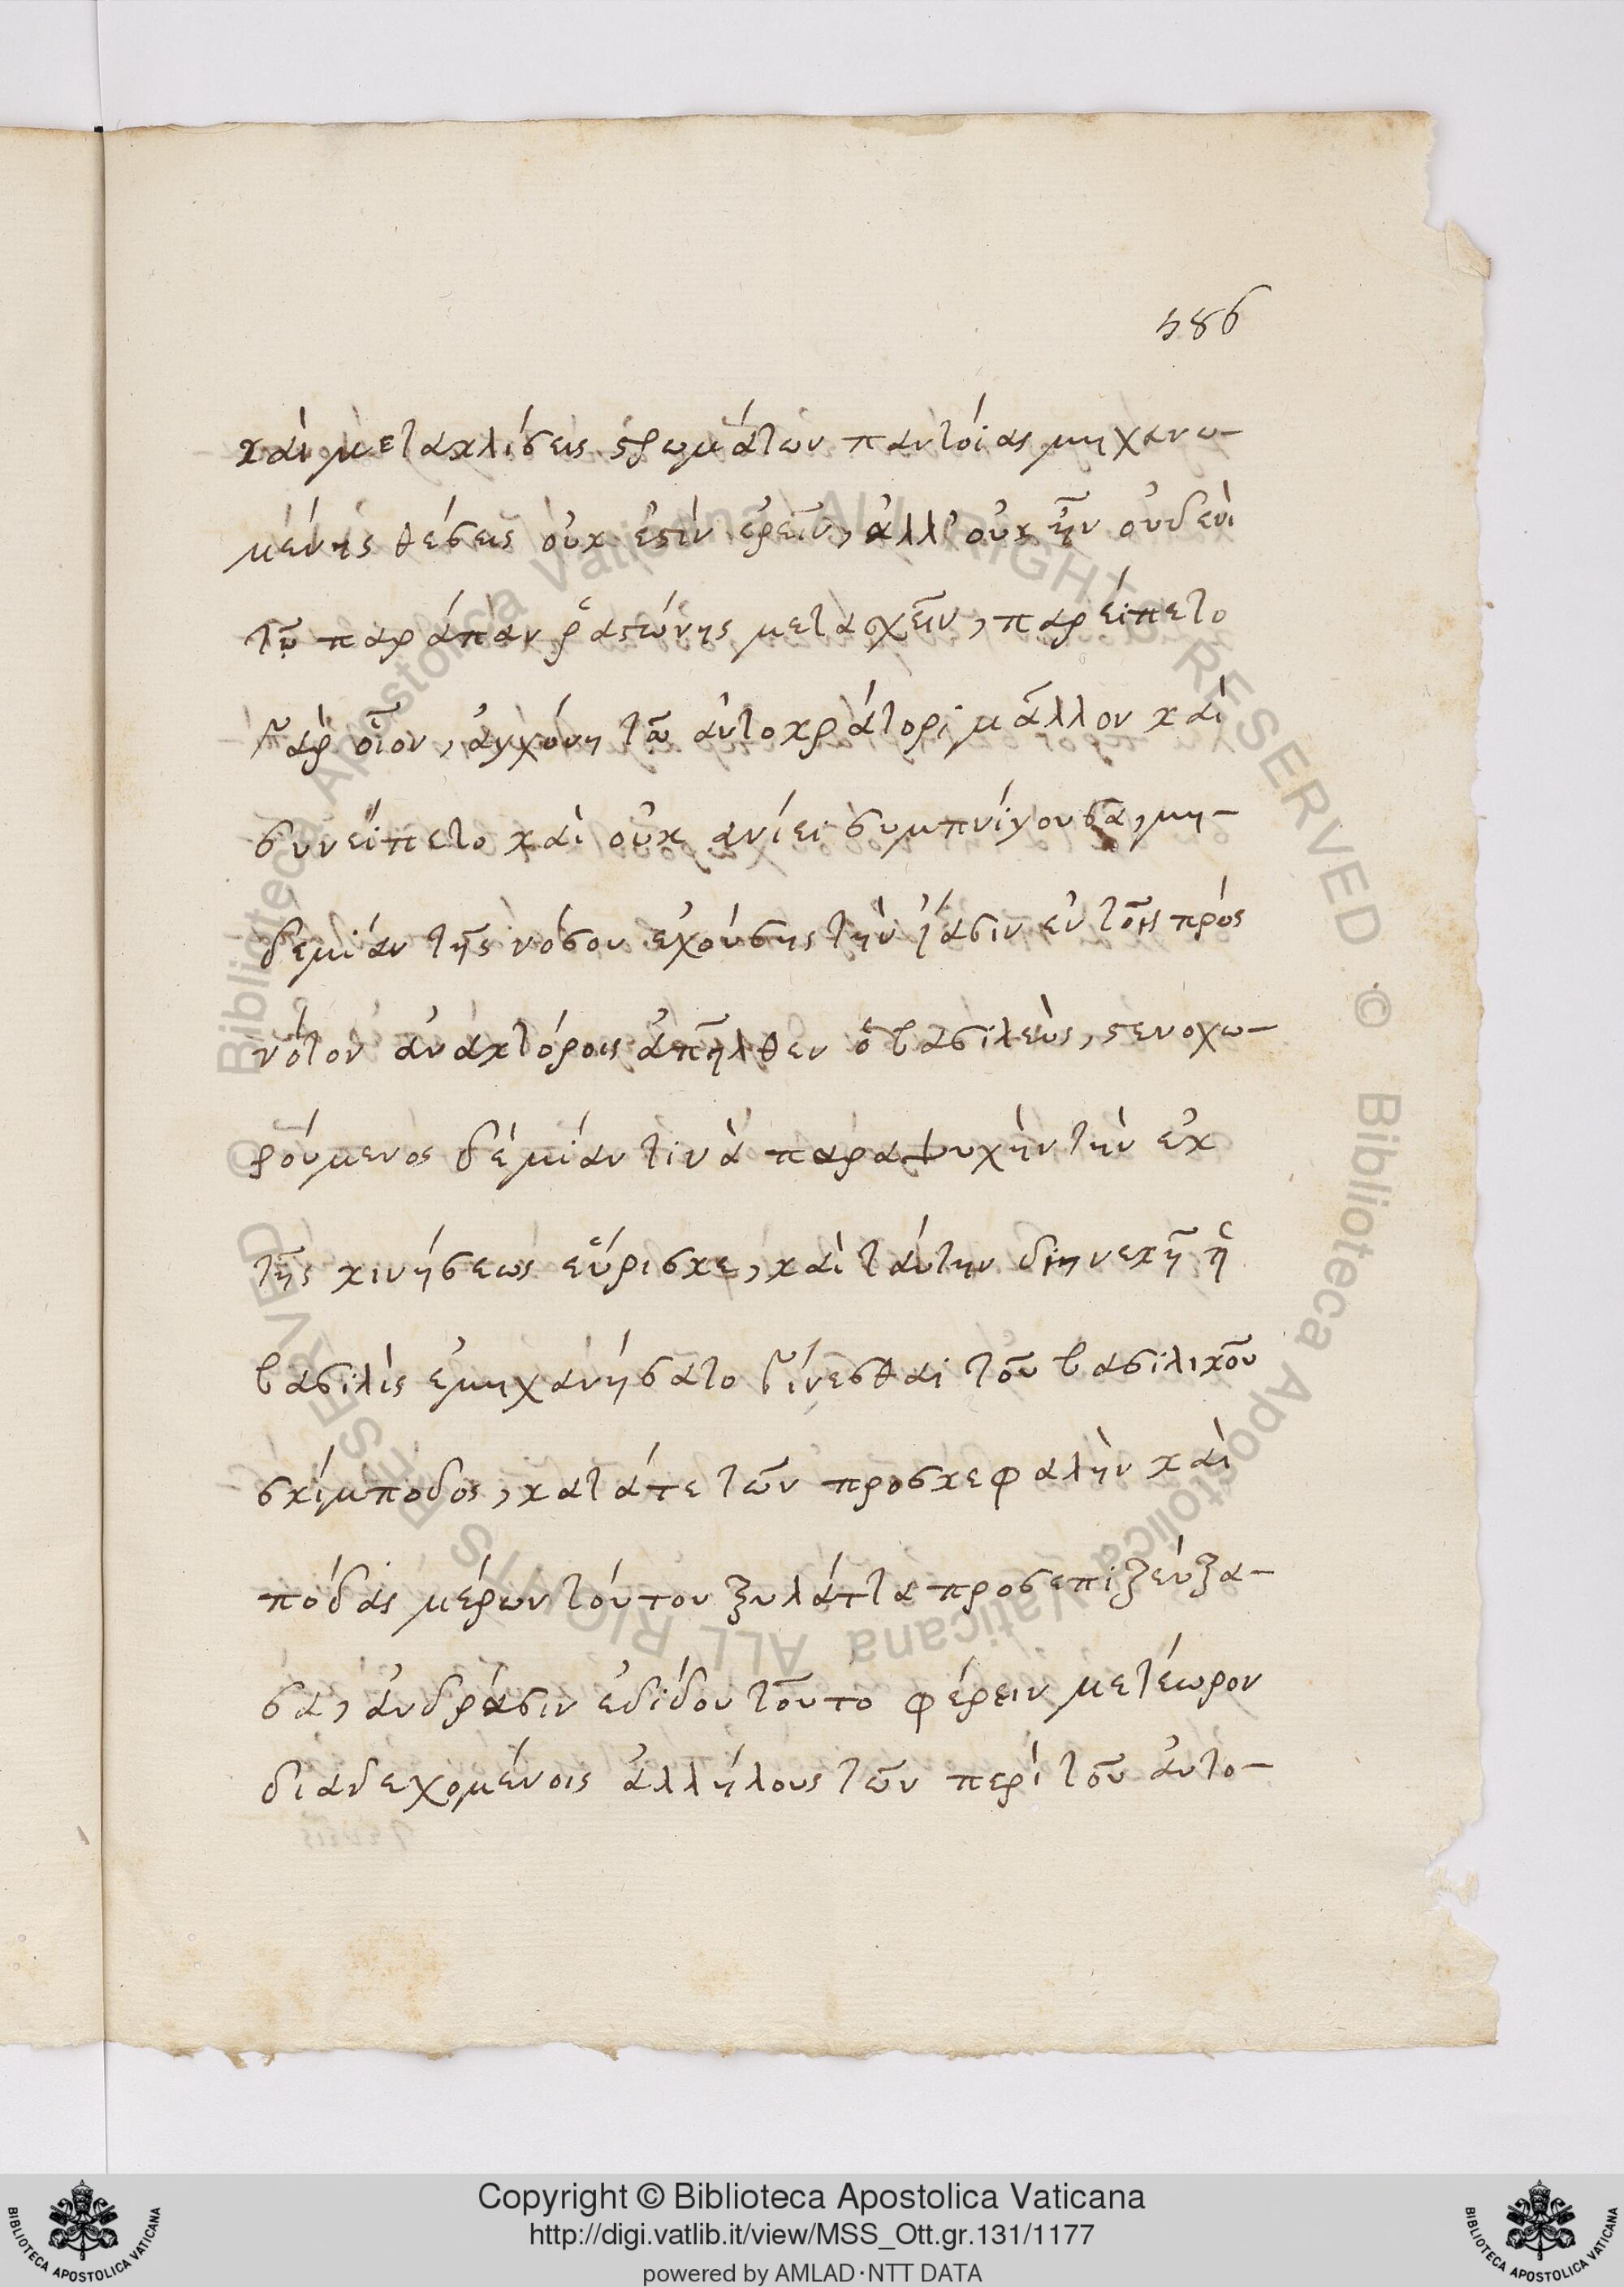 586
καὶ μετακλίσεις στρωμάτων παντοίας μηχανω-
μένης θέσεις οὐκ ἐστὶν ἐρεῖν, ἀλλ' οὐκ ἦν οὐδενὶ
τῷ παράπαν ῥαστώνης μετασχεῖν, παρείπετο
γὰρ οἷον, ἀγχόνη τῶ αὐτοκράτορι μᾶλλον καὶ
συνείπετο καὶ οὐκ ἀνίει συμπνίγουσα, μη-
δεμίαν τῆς νόσου ἐχούσης τὴν ἴασιν ἐν τοῖς πρὸς
νότον ἀνακτόροις ἀπῆλθεν ὁ βασιλεὺς, στενοχω-
ρούμενος δὲ μίαν τινὰ παραψυχὴν τὴν ἐκ
τῆς κινήσεως εὕρισκε, καὶ ταύτην διηνεκῆ ἡ
βασιλὶς ἐμηχανήσατο γίνεσθαι τοῦ βασιλικοῦ
σκίμποδος, κατά τε τῶν προσκεφαλὴν καὶ
πόδας μέρων τούτου ξυλάττα προσεπιζεύξα-
σα, ἀνδράσιν ἐδίδου τοῦτο φέρειν μετέωρον
διαδεχομένοις ἀλλήλους τῶν περὶ τοῦ αὐτο-
Copyright © Biblioteca Apostolica Vaticana
http://digi.vatlib.it/view/MSS_Ott.gr.131/1177
powered by AMLAD·NTT DATA
BIBLIOTECA APOSTOLICA VATICANA
BIBLIOTECA APOSTOLICA VATICANA
© Biblioteca Apostolica Vaticana ALL RIGHTS RESERVED © Biblioteca Apostolica Vaticana ALL RIGHTS RESERVED